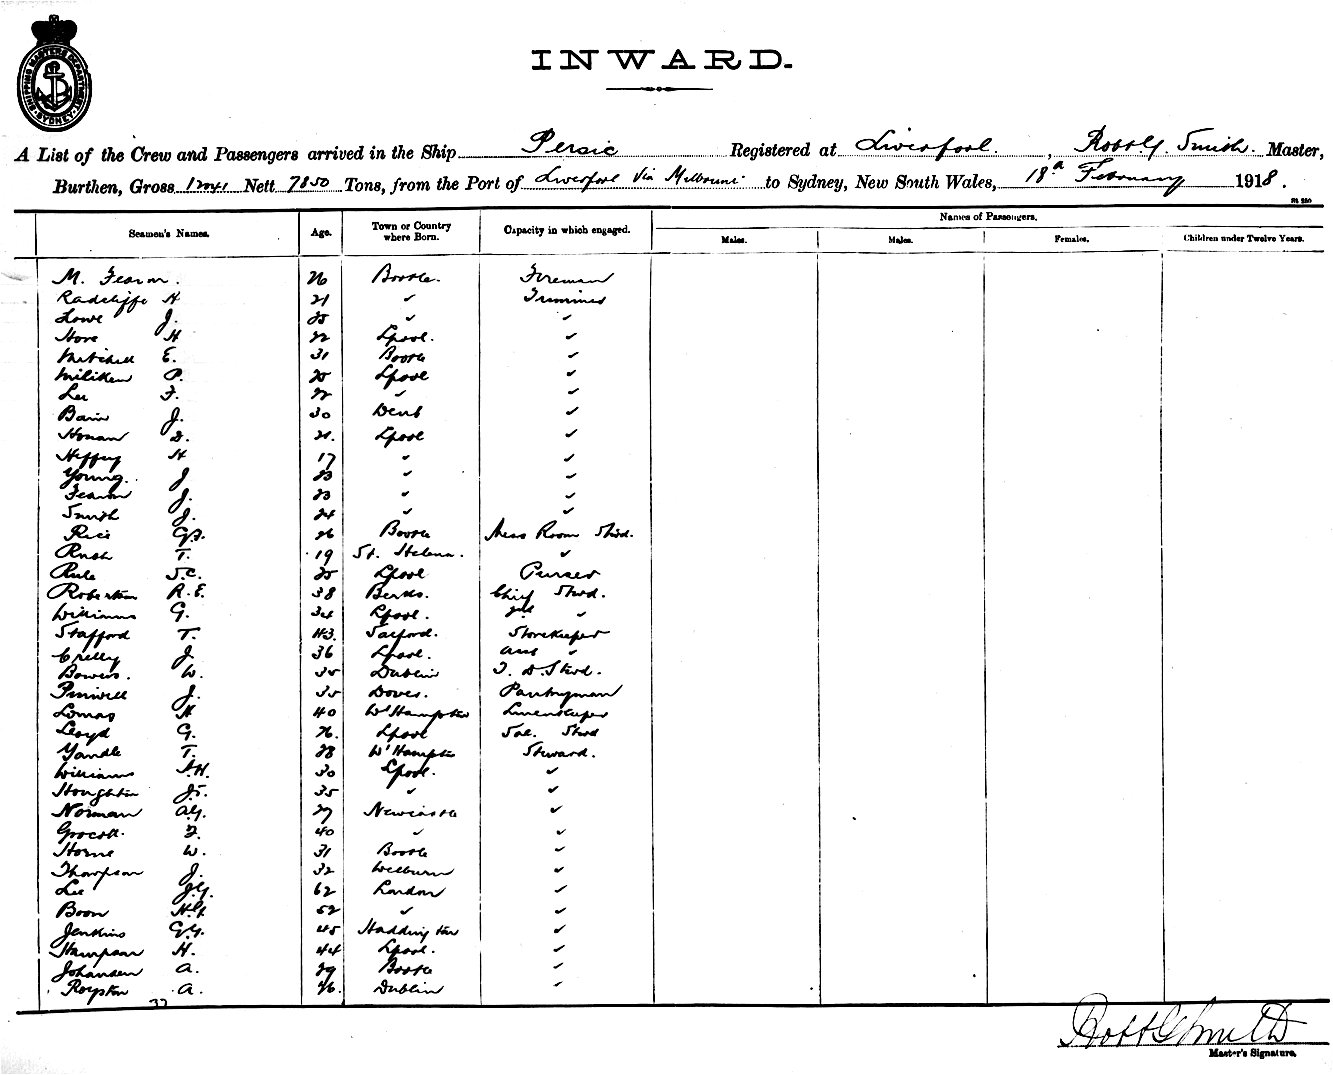 SHIPPING MASTERS DEPARTMENT SYDNEY
INWARD.
A List of the Crew and Passengers arrived in the Ship Persic Registered at Liverpool. , Robt G. Smith. Master,
Burthen, Gross Nett 7850 Tons, from the Port of Liverpool Via Melbourne to Sydney, New South Wales, 18th February 1918.
Names of Passengers.
Seamen's Names. Age. Town or Country where Born. Capacity in which engaged. Males. Males. Females. Children under Twelve Years.
M. Fearon. 26 Bootle. Fireman
Radcliffe H 21 " Trimmer
Lowe J. 25 " "
Hore H 22 Lpool. "
Mitchell E. 31 Bootle "
Miliken P. 25 Lpool "
Lee F. 22 " "
Bain J. 30 "
Honan D. 21. Lpool "
H 17 " "
Young. J 23 " "
Fearon J. 23 " "
Smith J. 24 " "
Rice 26 Bootle Mess Room Stwd.
Rush T. 19 St. Helena. "
Rule S.C. 25 Lpool Purser
Robertson R.E. 38 Berks. Chief Stwd.
Williams G. 34 Lpool. "
Stafford T. 43. Salford. Storekeeper
Crelly J. 36 Lpool. "
Bowers. W. 35 Dublin Stwd.
J. 35 Dover. Pantryman
Lomas H 40 W'Hampton Linenkeeper
Lloyd G. 26. Lpool Sal. Stwd
Yandle T. 28 W'Hampton Steward.
Williams 30 Lpool. "
Houghton 35 " "
Norman 27 Newcastle "
Grocott. 40 " "
Horne W. 31 Bootle "
Thompson J. 32 Welburn "
Lee J.G. 62 London "
Boon 52 " "
Jenkins 45 Haddington "
Hampson H. 44 Lpool. "
Johansen A. 29 Bootle "
Royston A. 26. Dublin "
37
Robt G Smith
Master's Signature.